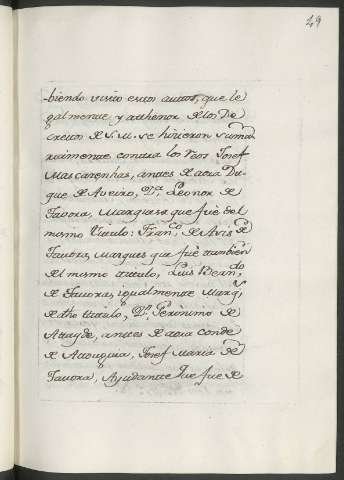 49
biendo visto estos auttos, que le
galmente y atthenor de los De
cretos de S.M. se hicieron suma
riaimente contra los reos Josef
Mascarenhas, anttes de aora Du
que de Aveiro, Dª. Leonor de
Tavora, Marquesa que fuè del
mismo titulo: Franco. de Asis de
Tavora, Marques que fuè tambien
del mismo titulo, Luis Berndo.
de Tavora, igualmente Marqs.
de dho titulo, Dn. Geronimo de
Attayde, anttes de aora conde
de Attouguia, Josef Maria de
Tavora, Ayudantte que fue de